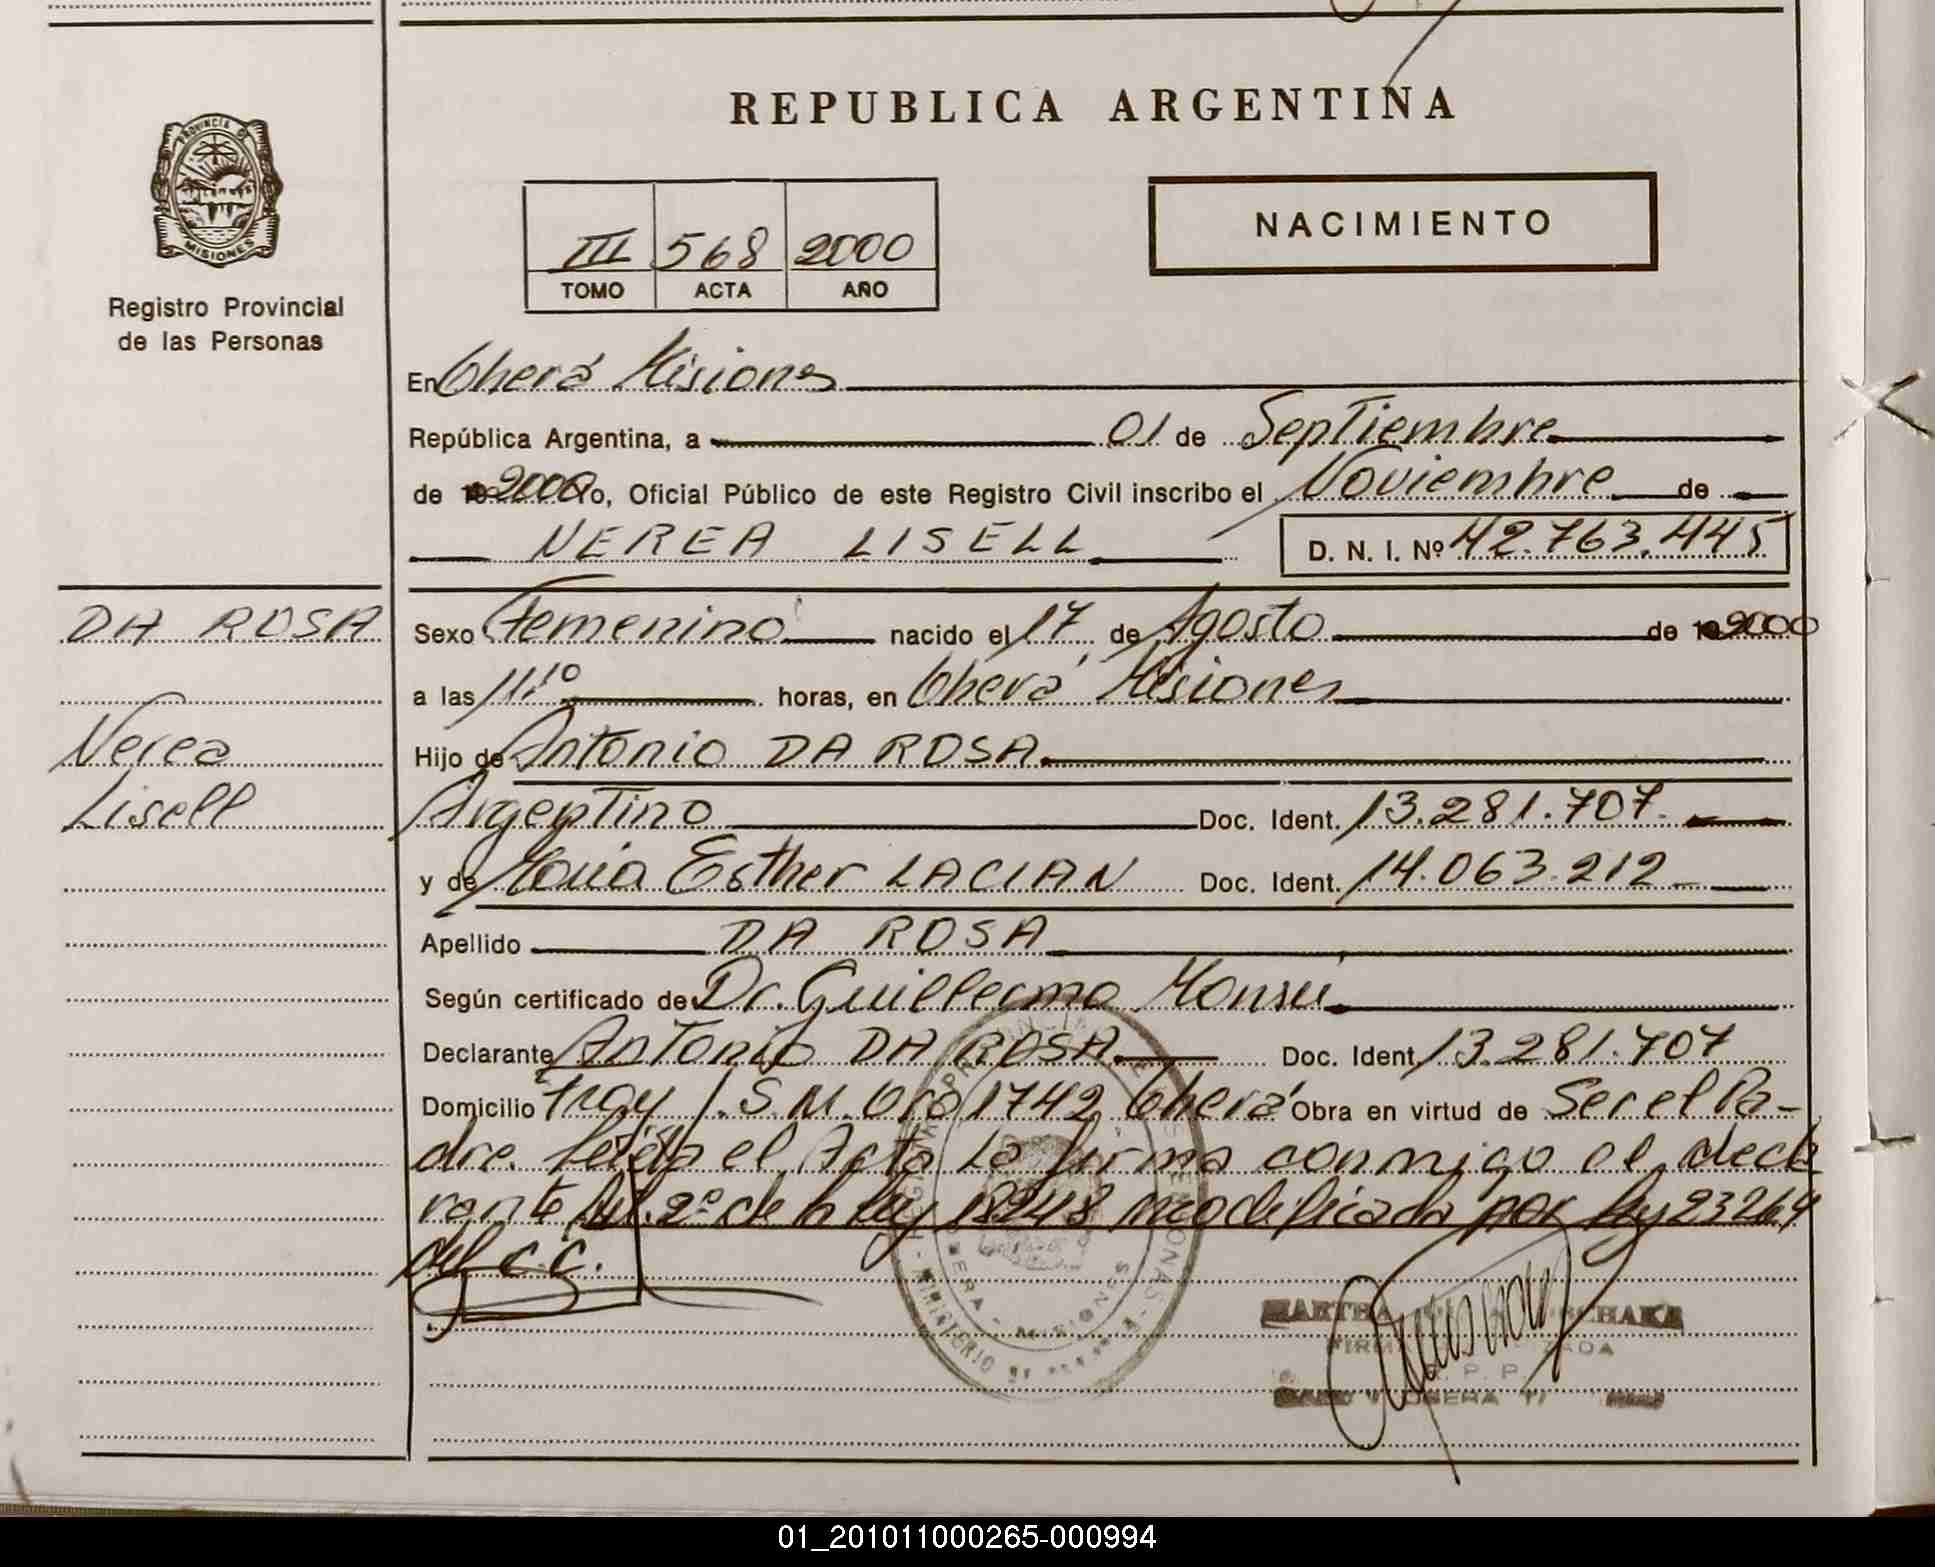 REPUBLICA ARGENTINA
PROVINCIA DE
MISIONES
Registro Provincial
de las Personas
III 568 2000
TOMO ACTA AÑO
NACIMIENTO
En Oberá Misiones
República Argentina, a 01 de Septiembre
de 2000 Yo, Oficial Público de este Registro Civil inscribo el Noviembre de
NEREA LISELL D. N. I. Nº 42.763.445
DA ROSA
Nerea
Lisell
Sexo Femenino nacido el 17 de Agosto de 2000
a las 11:10 horas, en Oberá Misiones
Hijo de Antonio DA ROSA
Argentino Doc. Ident. 13.281.707
y de María Esther LACIAN Doc. Ident. 14.063.212
Apellido DA ROSA
Según certificado de Dr. Guillermo
Declarante Antonio DA ROSA Doc. Ident. 13.281.707
Domicilio Fray J. S. M. Oro 1742 Oberá Obra en virtud de Ser el Pa-
dre. Leída el Acta La firma conmigo el decla
rante Art. 2º de la ley 18248 modificada por ley 23264
del C.C.
OBERA - MISIONES
MINISTERIO DE
MARTHA
FIRMA
OBERA
01_201011000265-000994